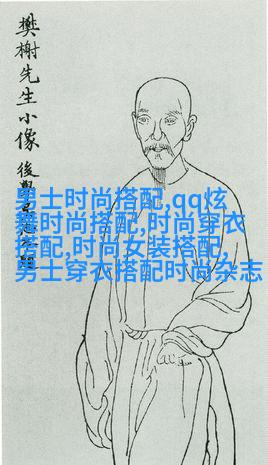 樊榭先生小像
後學
男士时尚搭配,qq炫
舞时尚搭配,时尚穿衣
搭配,时尚女装搭配,
男士穿衣搭配时尚杂志